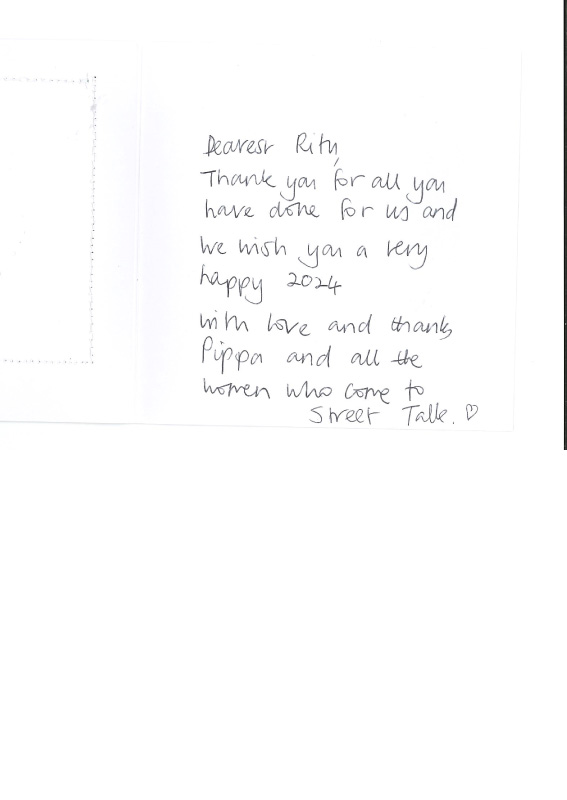 Dearest Ritu,
Thank you for all you
have done for us and
we wish you a very
happy 2024
with love and thanks
Pippa and all the
women who come to
Street Talk. ♡